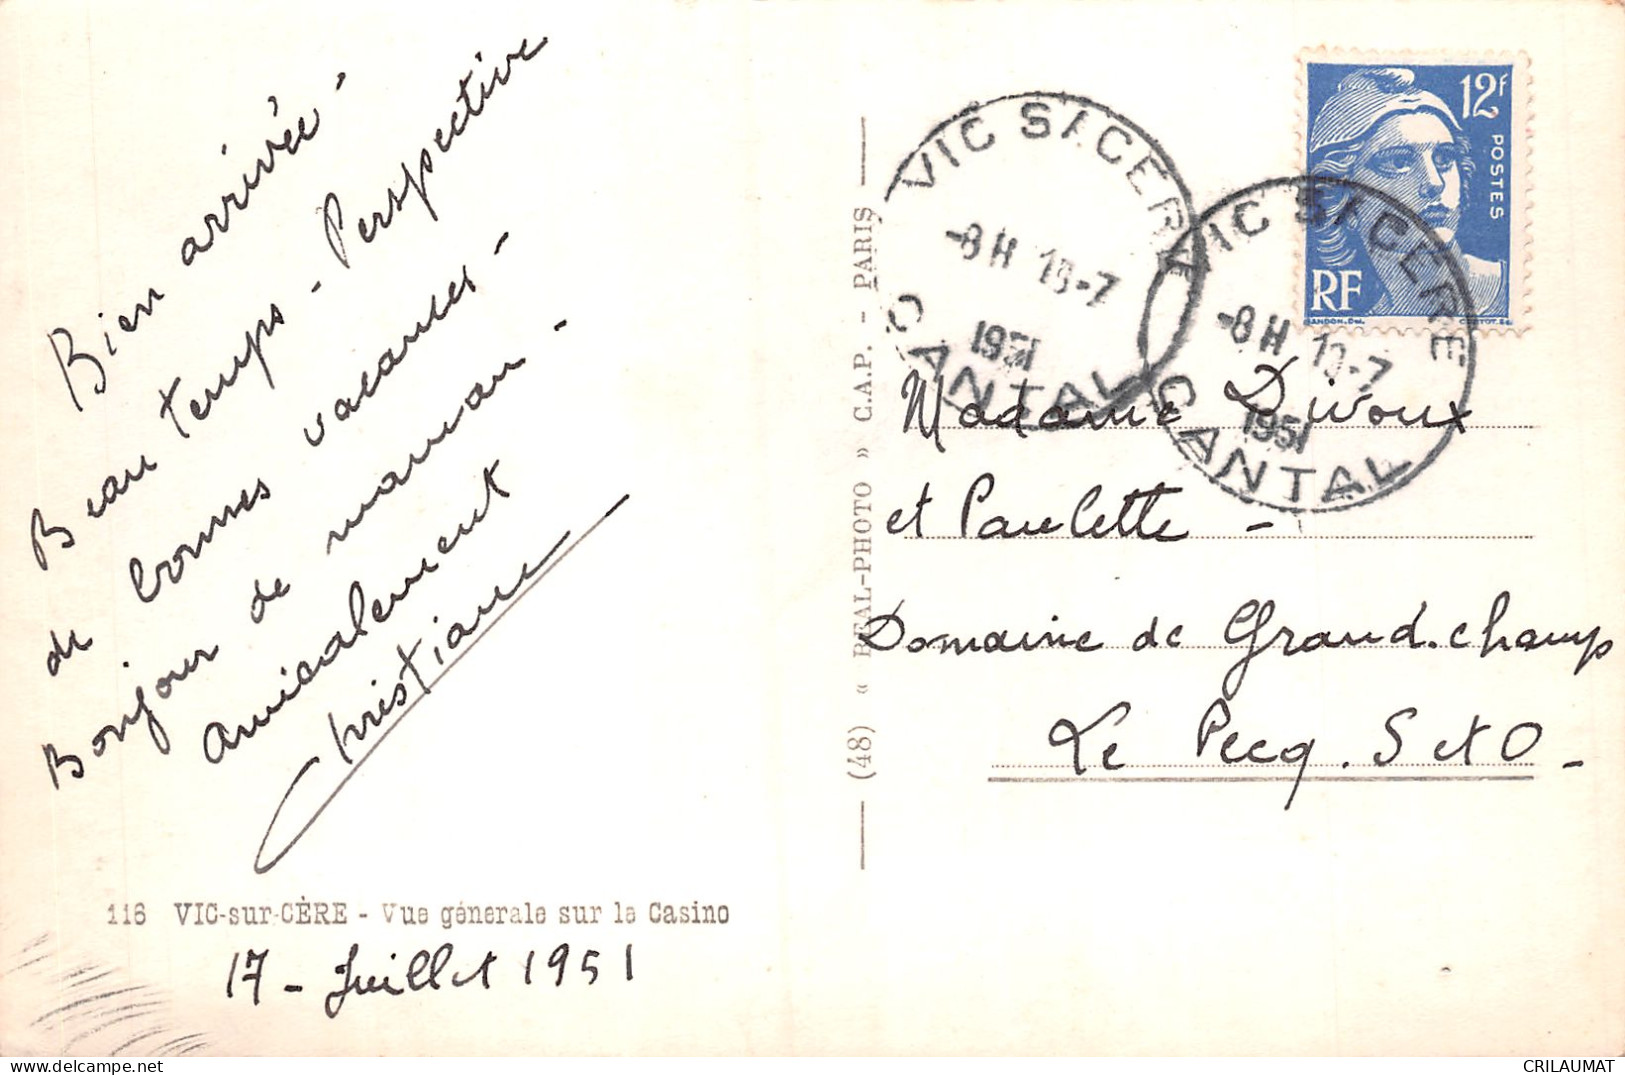 Bien arrivée -
Beau temps - Perspective
de bonnes vacances -
Bonjour de maman -
amicalement
Christiane
116 VIC-sur-CÈRE - Vue générale sur le Casino
17 - Juillet 1951
(48) « REAL-PHOTO » C.A.P. - PARIS
VIC S/CERE
-8H 18-7
1951
CANTAL
VIC S/CERE
-8H 18-7
1951
CANTAL
12F
POSTES
RF
Madame Divoux
et Paulette -
Domaine de Grand.champ
Le Pecq. S et O -
CRILAUMAT